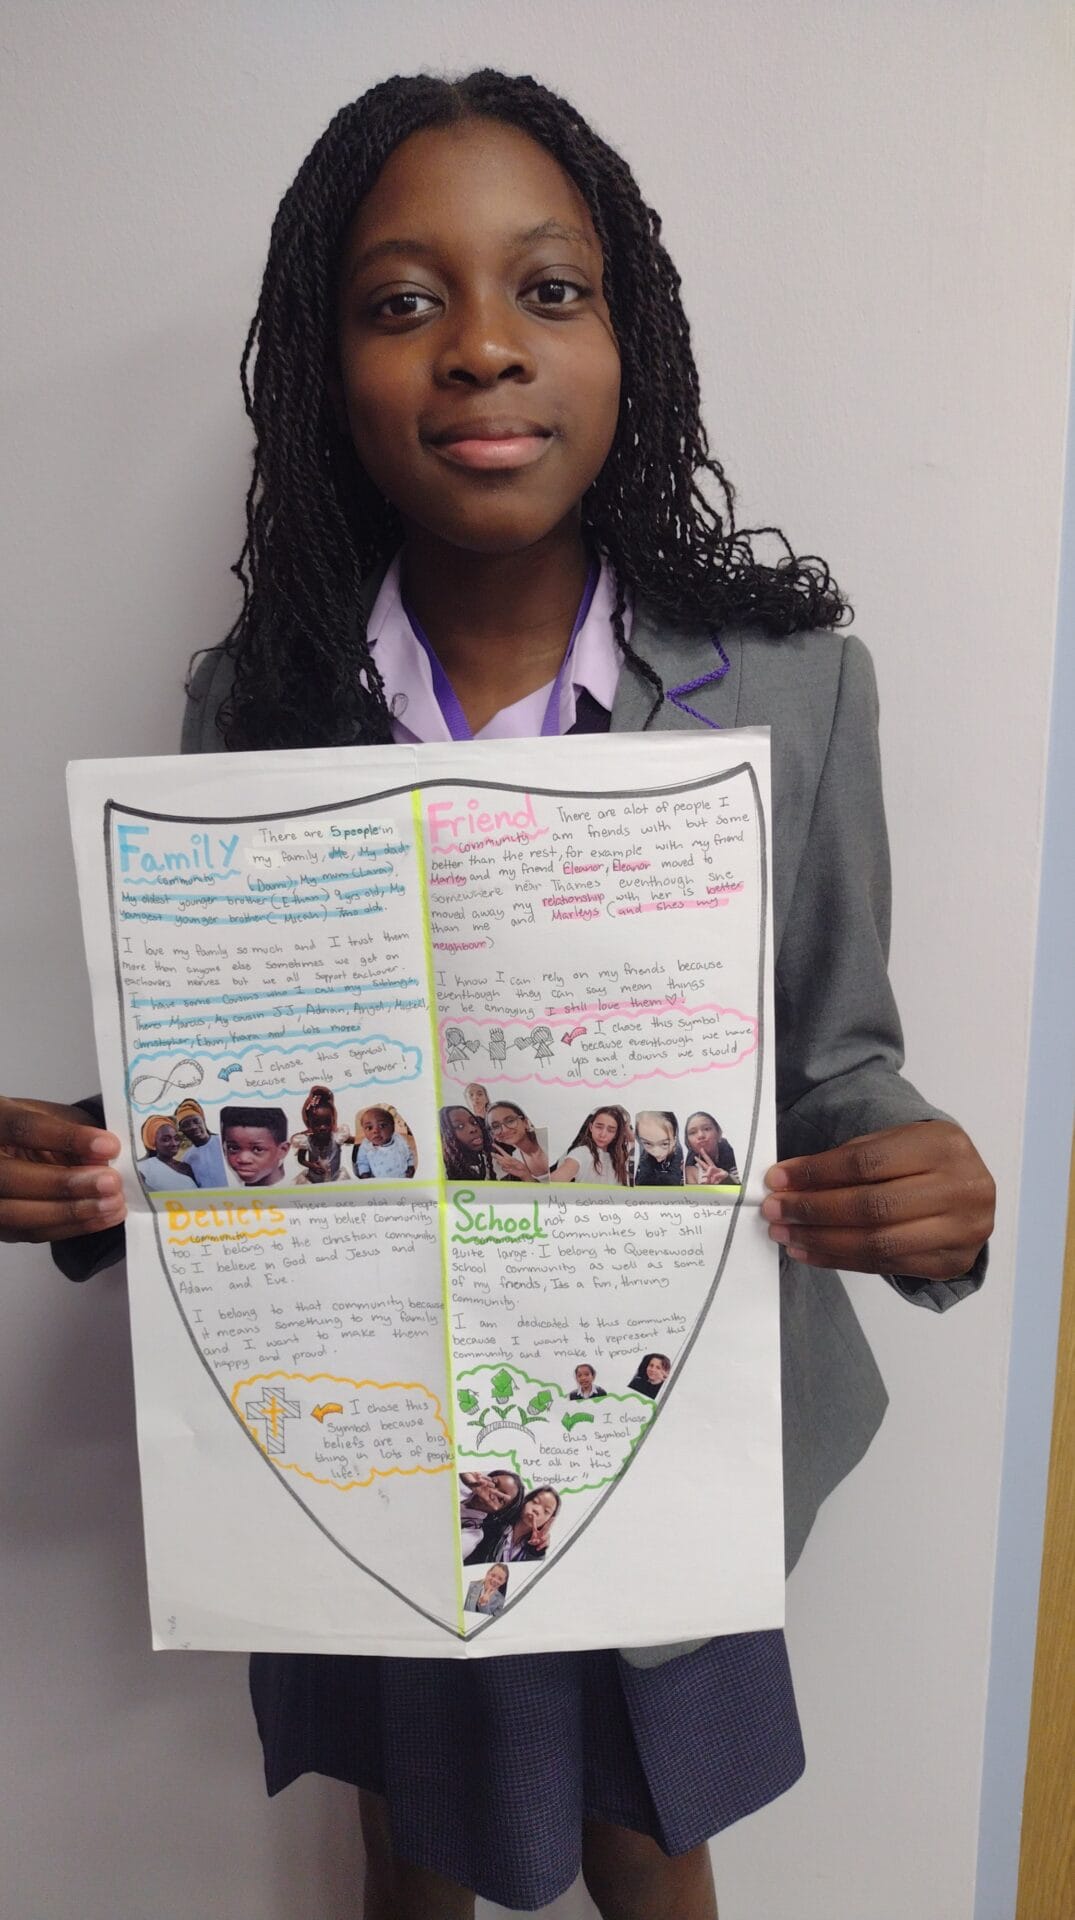 Family
Community
There are 5 people in
my family, Me, My dad
(Dami), My mum (Lara),
My oldest younger brother (Ethan) 9 yrs old, My
youngest younger brother (Micah) 7mo old.
I love my family so much and I trust them
more than anyone else sometimes we get on
eachovers nerves but we all support eachover.
I have some cousins who I call my siblings,
Theres Marcus, My cousin JJ, Adrian, Angel,
Christopher, Ebun, Kiara and lots more
family
I chose this symbol
because family is forever!
Friend
Community
There are alot of people I
am friends with but some
better than the rest, for example with my friend
Marley and my friend Eleanor, Eleanor moved to
somewhere near Thames eventhough she
moved away my relationship with her is better
than me and Marleys (and shes my
neighbour)
I know I can rely on my friends because
eventhough they can say mean things
or be annoying I still love them ♡!
I chose this symbol
because eventhough we have
ups and downs we should
all care!
Beliefs
Community
There are alot of people
in my belief community
too. I belong to the christian community
so I believe in God and Jesus and
Adam and Eve.
I belong to that community because
it means something to my family
and I want to make them
happy and proud.
I chose this
symbol because
beliefs are a big
thing in lots of peoples
life!
School
Community
My school community is
not as big as my other
communities but still
quite large. I belong to Queenswood
School community as well as some
of my friends, Its a fun, thriving
community.
I am dedicated to this community
because I want to represent this
community and make it proud.
I chose
this symbol
because "we
are all in this
together"